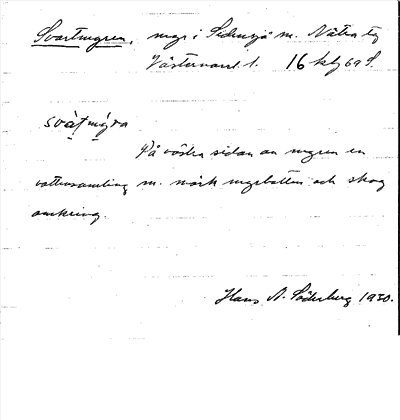 Svartmyren, myr i Sidensjö sn. Nätra tg
Västernorrl. l. 16 kbg 69 S.
svàt̩mýra
På västra sidan av myren en
vattensamling m. mörk myrbotten och skog
omkring.
Hans A. Söderberg 1930.